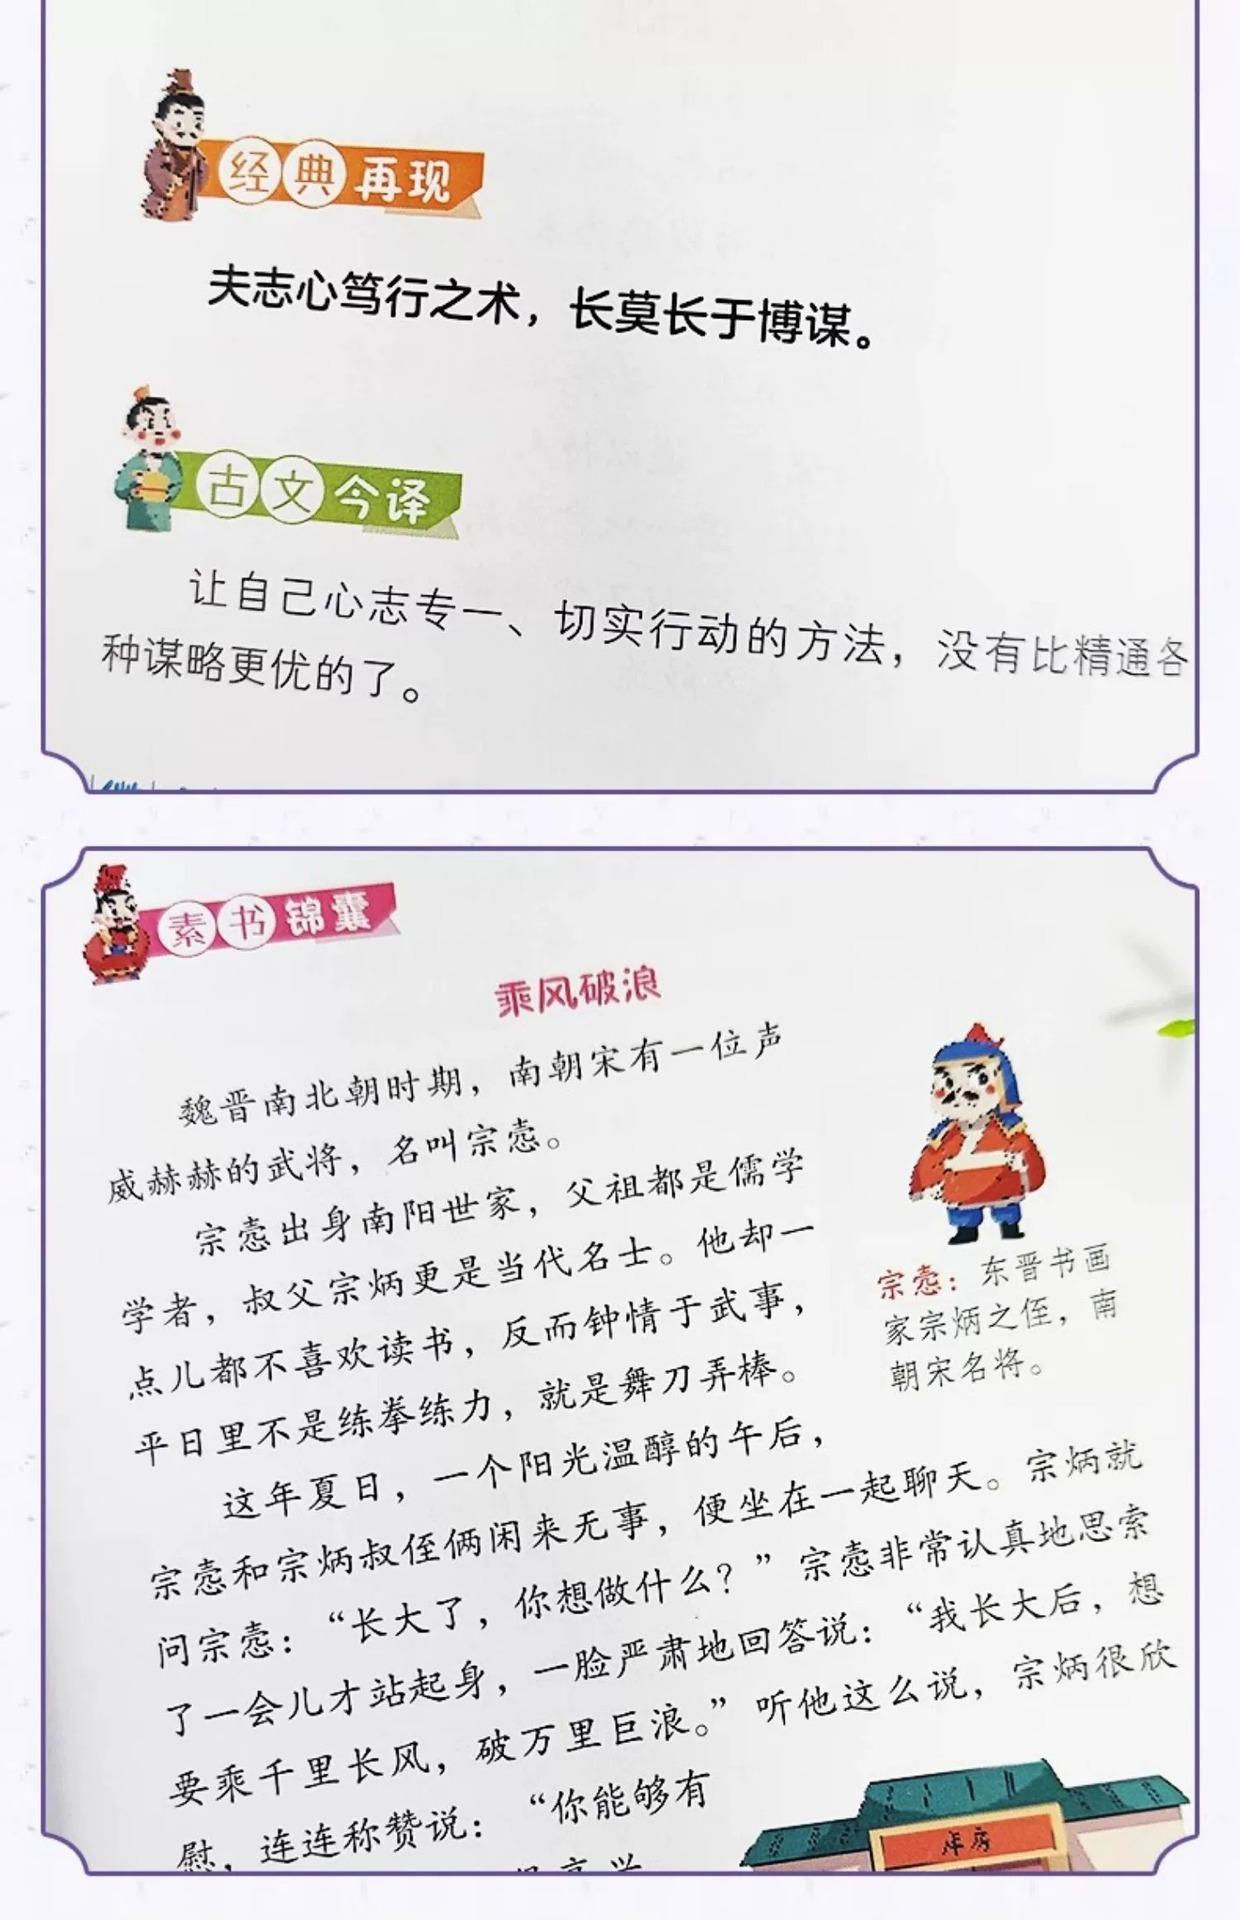 经典再现
夫志心笃行之术，长莫长于博谋。
古文今译
让自己心志专一、切实行动的方法，没有比精通各
种谋略更优的了。
素书锦囊
乘风破浪
魏晋南北朝时期，南朝宋有一位声
威赫赫的武将，名叫宗悫。
宗悫出身南阳世家，父祖都是儒学
学者，叔父宗炳更是当代名士。他却一
点儿都不喜欢读书，反而钟情于武事，
平日里不是练拳练力，就是舞刀弄棒。
宗悫：东晋书画
家宗炳之侄，南
朝宋名将。
这年夏日，一个阳光温醇的午后，
宗悫和宗炳叔侄俩闲来无事，便坐在一起聊天。宗炳就
问宗悫：“长大了，你想做什么？”宗悫非常认真地思索
了一会儿才站起身，一脸严肃地回答说：“我长大后，想
要乘千里长风，破万里巨浪。”听他这么说，宗炳很欣
慰，连连称赞说：“你能够有